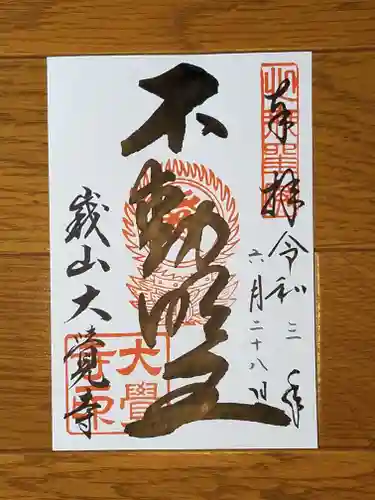 奉拝
令和三年
六月二十八日
不動明王
嵯峨山大覺寺
大覺
寺印